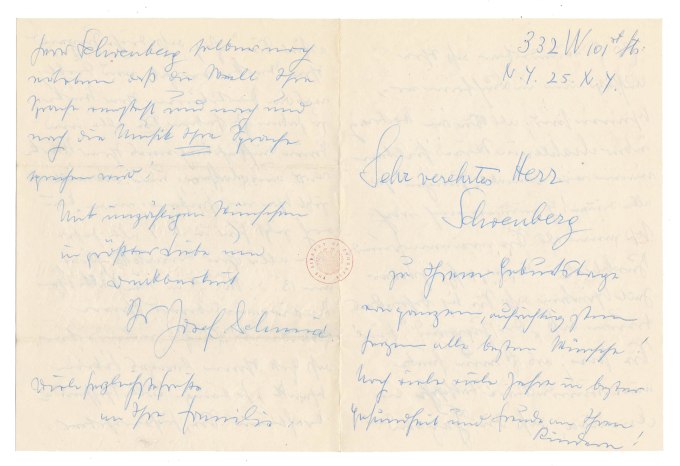 332 W 101st Str.
N.Y. 25. N.Y.
Sehr verehrter Herr
Schoenberg
zu Ihrem Geburtstage
von ganzem, aufrichtigstem
Herzen alle besten Wünsche!
Noch viele viele Jahre in bester
Gesundheit und Freude an Ihren
Kindern!
Herr Schoenberg selber noch
erleben daß die Welt Ihre
Sprache versteht und nach und
nach die Musik Ihre Sprache
sprechen wird!
Mit unzähligen Wünschen
in größter Liebe und
Dankbarkeit
Ihr Josef Schmid
Viele herzlichste Grüße
an Ihre Familie